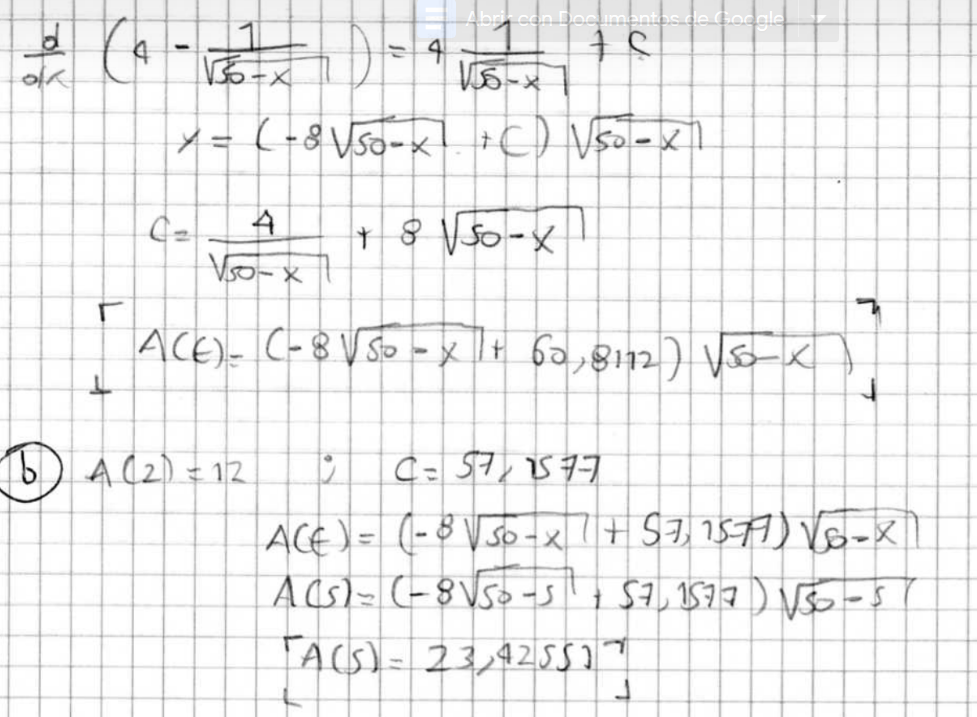 Abrir con Documentos de Google
d/dx (4 - 1/√50-x) = 4 1/√50-x + C
y = (-8√50-x + C) √50-x
C = 4/√50-x + 8 √50-x
A(t) = (-8√50-x + 60,8112) √50-x
b) A(2) = 12 ; C = 57,1577
A(t) = (-8√50-x + 57,1577) √50-x
A(5) = (-8√50-5 + 57,1577) √50-5
A(5) = 23,42551